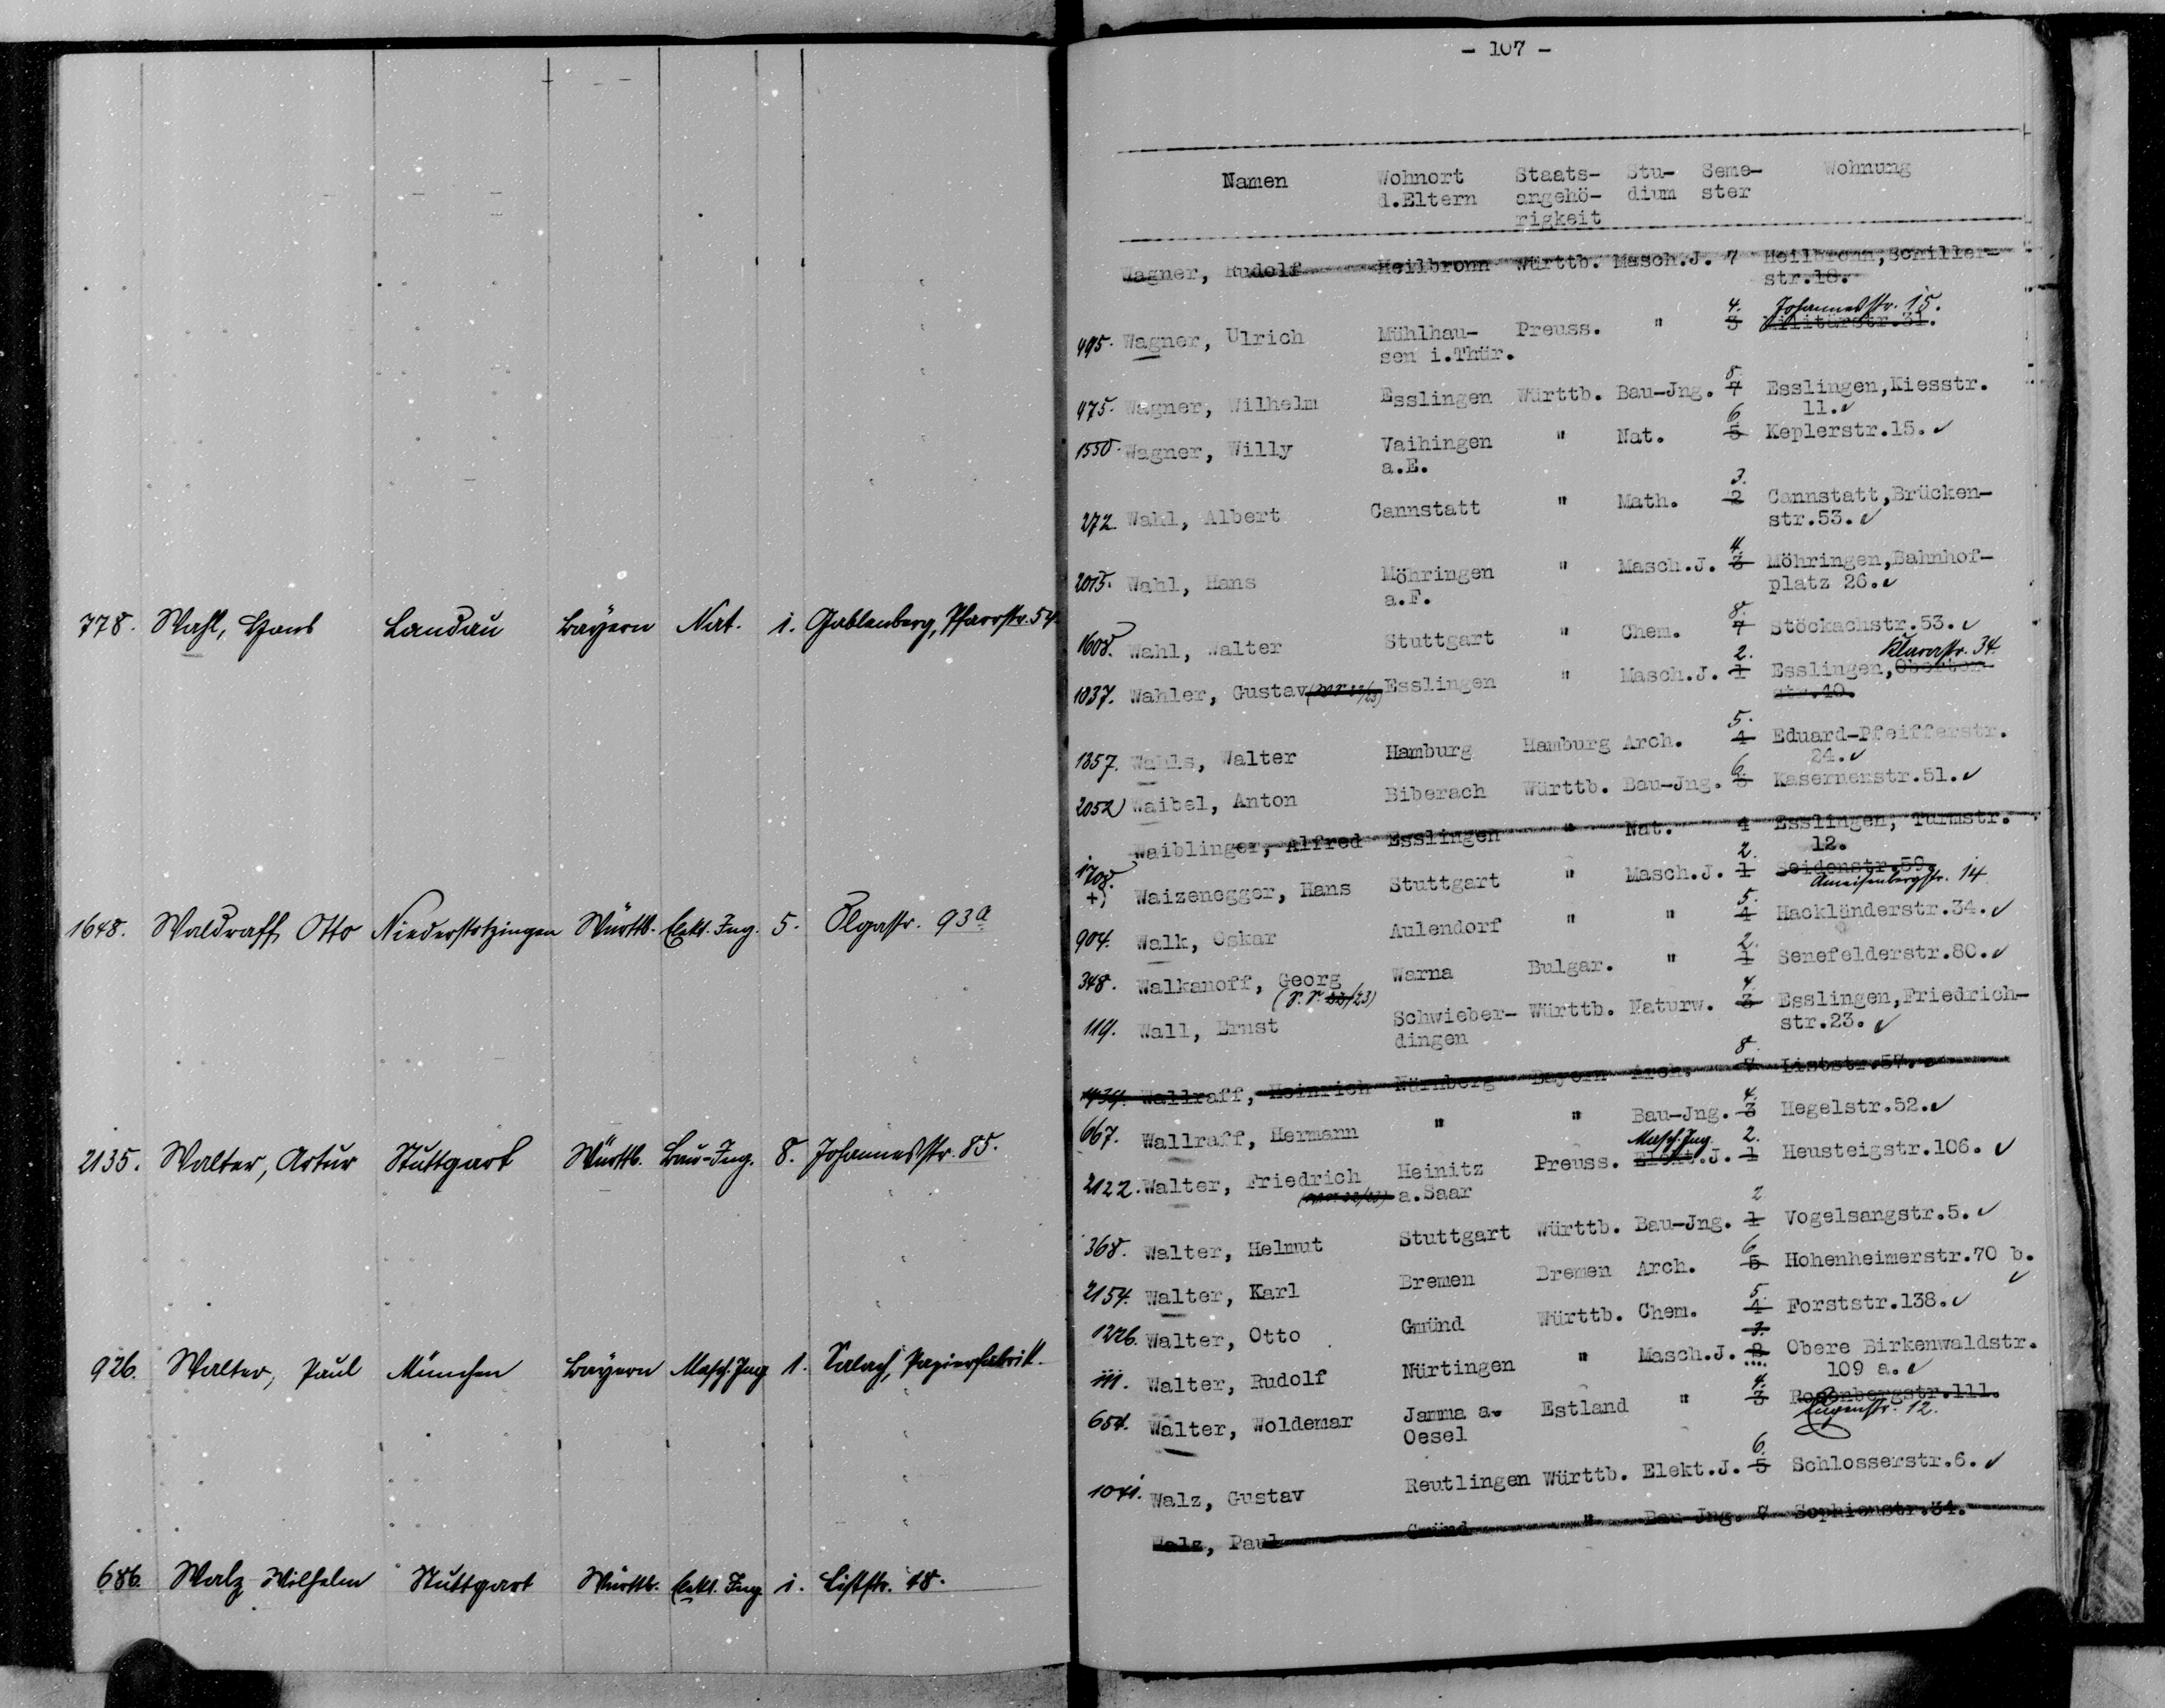 778. Wahl, Hans Landau Bayern Nat. 1. Gablenberg, Pfarrstr. 54.
1648. Waldraff Otto Niederstotzingen Württb. Elekt. Ing. 5. Olgastr. 93a
2135. Walter, Artur Stuttgart Württb. Bau-Ing. 8. Johannesstr. 85.
926. Walter, Paul München Bayern Masch. Ing 1. Papierfabrik.
686. Walz Wilhelm Stuttgart Württb. Elekt. Ing 1. Liststr. 18.
- 107 -
Namen Wohnort Staats- Stu- Seme- Wohnung
d.Eltern angehö- dium ster
rigkeit
Wagner, Rudolf Heilbronn Württb. Masch.J. 7 Heilbronn,Schiller-
str.18.
4. Johannesstr. 15.
495. Wagner, Ulrich Mühlhau- Preuss. " 3 Militärstr.31.
sen i.Thür.
8.
475. Wagner, Wilhelm Esslingen Württb. Bau-Jng. 7 Esslingen,Kiesstr.
11.✓
6.
1550. Wagner, Willy Vaihingen " Nat. 5 Keplerstr.15.✓
a.E.
3.
272. Wahl, Albert Cannstatt " Math. 2 Cannstatt,Brücken-
str.53.✓
4.
2015. Wahl, Hans Möhringen " Masch.J. 3 Möhringen,Bahnhof-
a.F. platz 26.✓
8.
1608. Wahl, Walter Stuttgart " Chem. 7 Stöckachstr.53.✓
2. Klarastr. 34.
1037. Wahler, Gustav Esslingen " Masch.J. 1 Esslingen,Obertor-
str.40.
5.
1357. Wahls, Walter Hamburg Hamburg Arch. 4 Eduard-Pfeifferstr.
24.✓
6.
2052 Waibel, Anton Biberach Württb. Bau-Jng. 5 Kasernenstr.51.✓
Waiblinger, Alfred Esslingen " Nat. 4 Esslingen, Turmstr.
12.
2.
1708. +) Waizenegger, Hans Stuttgart " Masch.J. 1 Seidenstr.59.
Ameisenbergstr. 14
5.
904. Walk, Oskar Aulendorf " " 4 Hackländerstr.34.✓
2.
348. Walkanoff, Georg Warna Bulgar. " 1 Senefelderstr.80.✓
4.
119. Wall, Ernst Schwieber- Württb. Naturw. 3 Esslingen,Friedrich-
dingen str.23.✓
8.
1434. Wallraff, Heinrich Nürnberg Bayern Arch. 7 Liststr.57.✓
4.
667. Wallraff, Hermann " " Bau-Jng. 3 Hegelstr.52.✓
Masch. Ing. 2.
2122. Walter, Friedrich Heinitz Preuss. Elekt.J. 1 Heusteigstr.106.✓
a.Saar
2
368. Walter, Helmut Stuttgart Württb. Bau-Jng. 1 Vogelsangstr.5.✓
6
2154. Walter, Karl Bremen Bremen Arch. 5 Hohenheimerstr.70 b.
✓
5.
1226. Walter, Otto Gmünd Württb. Chem. 4 Forststr.138.✓
3.
111. Walter, Rudolf Nürtingen " Masch.J. 2 Obere Birkenwaldstr.
109 a.✓
4.
654. Walter, Woldemar Jamma a. Estland " 3 Rosenbergstr.111.
Oesel Eugenstr. 12.
6.
1041. Walz, Gustav Reutlingen Württb. Elekt.J. 5 Schlosserstr.6.✓
Walz, Paul Gmünd " Bau-Jng. 7 Sophienstr.34.